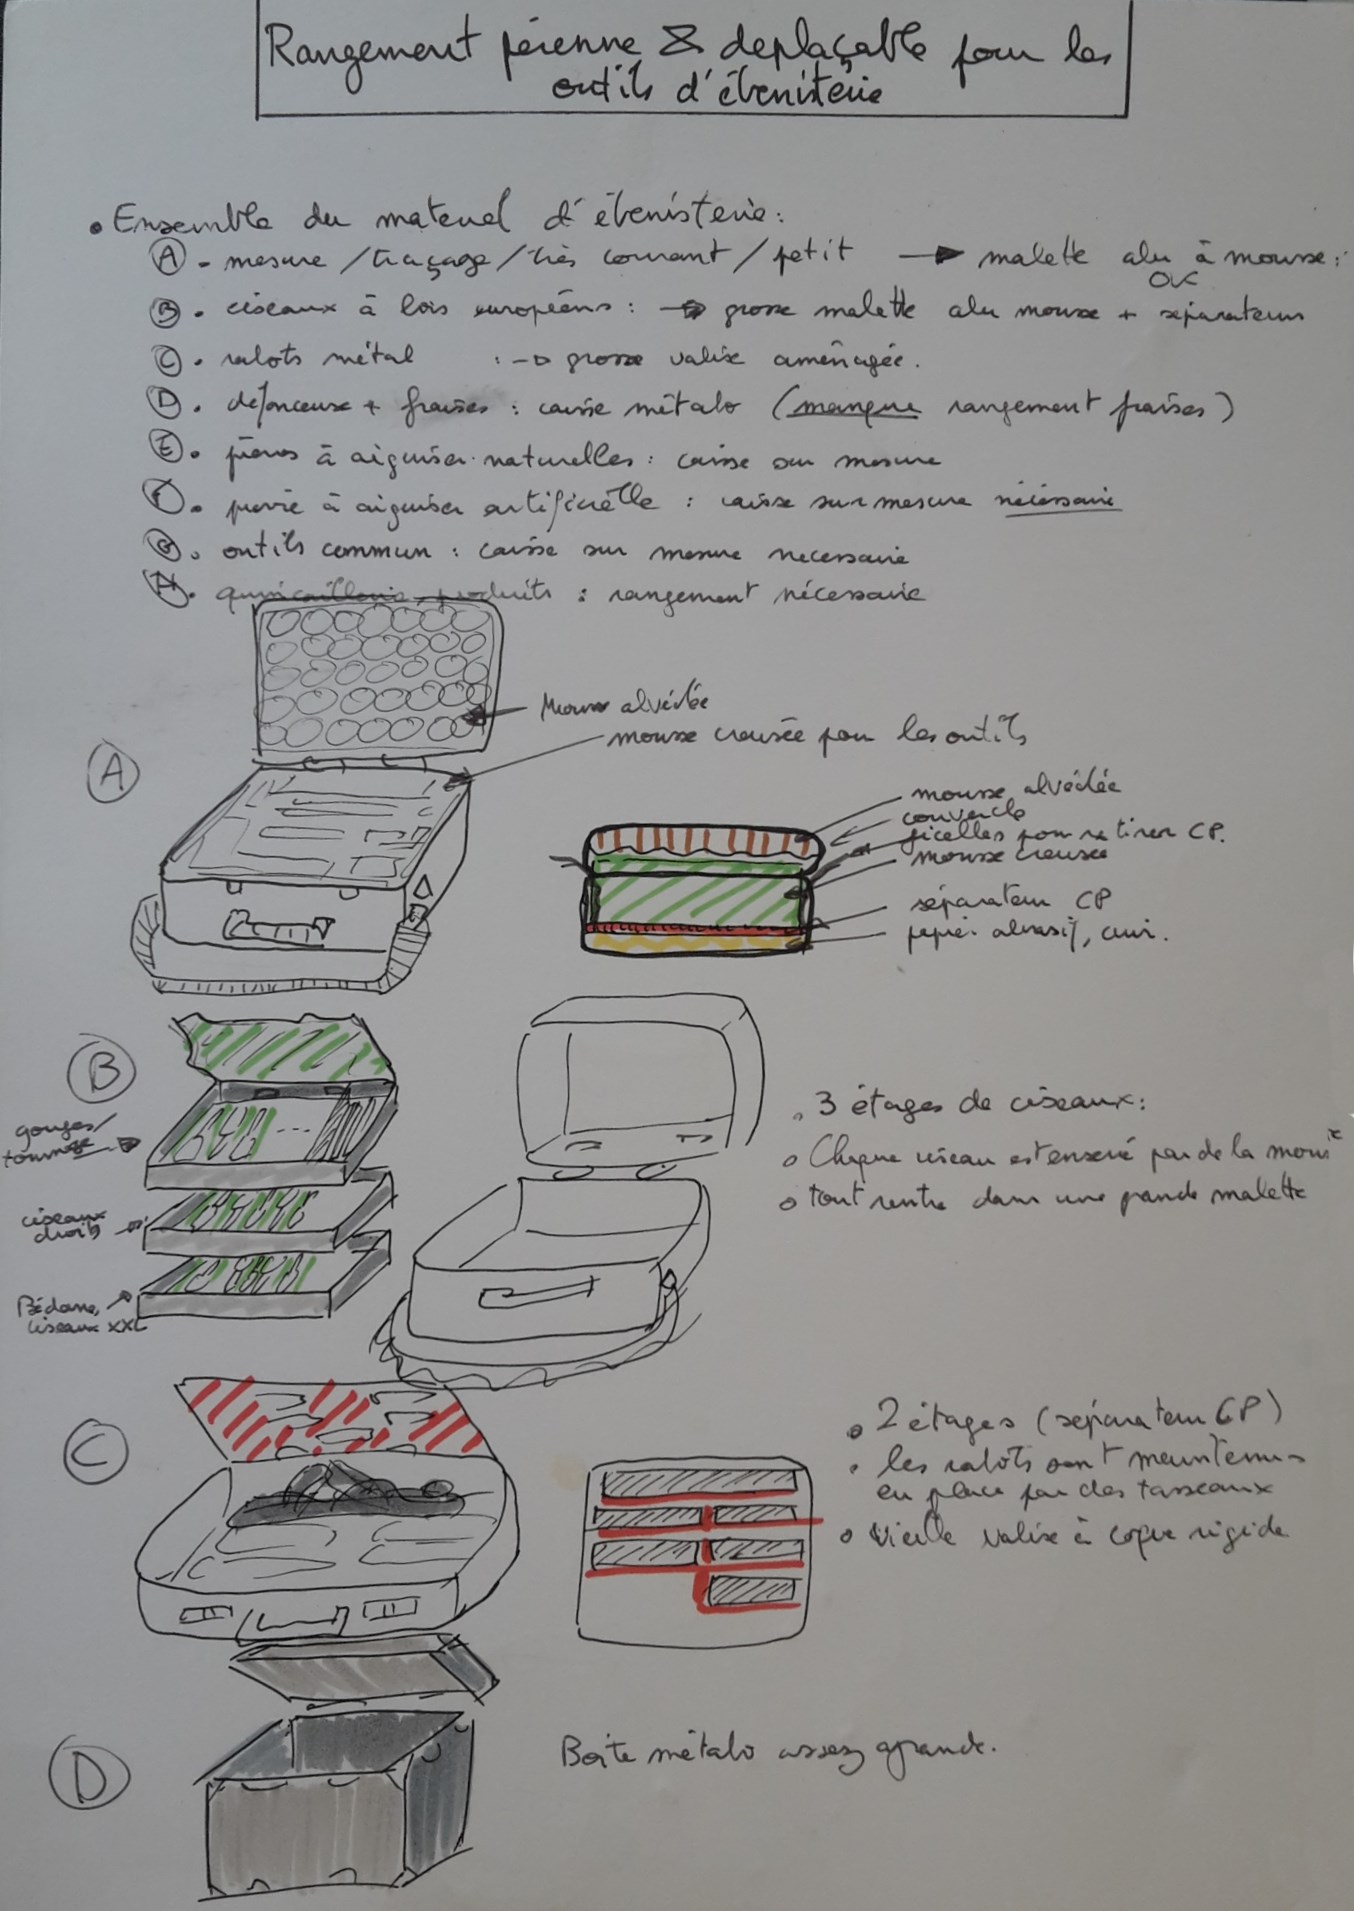 Rangement pérenne & deplaçable pour les
outils d'ébenisterie
• Ensemble du materiel d'ébenisterie:
(A) - mesure / traçage / très courant / petit → malette alu à mousse:
OK
(B) • ciseaux à bois européens: → grosse malette alu mousse + séparateurs
(C) • rabots métal : → grosse valise aménagée.
(D) • défonceuse + fraises : caisse métalo (manque rangement fraises)
(E) • pierres à aiguiser naturelles : caisse sur mesure
(F) • pierre à aiguiser artificielle : caisse sur mesure nécéssaire
(G) • outils commun : caisse sur mesure necessaire
(H) • quincaillerie, produits : rangement nécessaire
Mousse alvéolée
mousse creusée pour les outils
(A)
mousse alvéolée
couvercle
ficelles pour retirer CP.
mousse creusée
séparateur CP
papier abrasif, cuir.
(B)
gouges/
ciseaux
droits
Bédane,
ciseaux XXL
• 3 étages de ciseaux:
o Chaque ciseau est enserré par de la mousse
o tout rentre dans une grande malette
(C)
o 2 étages (séparateur CP)
• les rabots sont maintenus
en place par des tasseaux
o Vieille valise à coque rigide
(D)
Boite métalo assez grande.